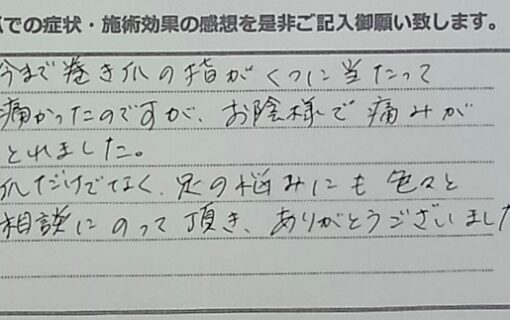 での症状・施術効果の感想を是非ご記入御願い致します。
今まで巻き爪の指がくつに当たって
痛かったのですが、お陰様で痛みが
とれました。
爪だけでなく、足の悩みにも色々と
相談にのって頂き、ありがとうございました